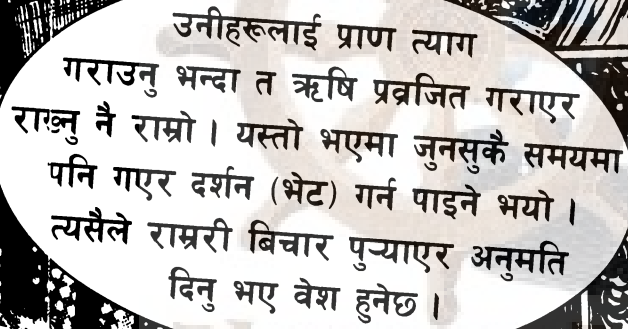 उनीहरूलाई प्राण त्याग
गराउनु भन्दा त ऋषि प्रव्रजित गराएर
राख्नु नै राम्रो । यस्तो भएमा जुनसुकै समयमा
पनि गएर दर्शन (भेट) गर्न पाइने भयो ।
त्यसैले राम्ररी बिचार पुऱ्याएर अनुमति
दिनु भए वेश हुनेछ ।